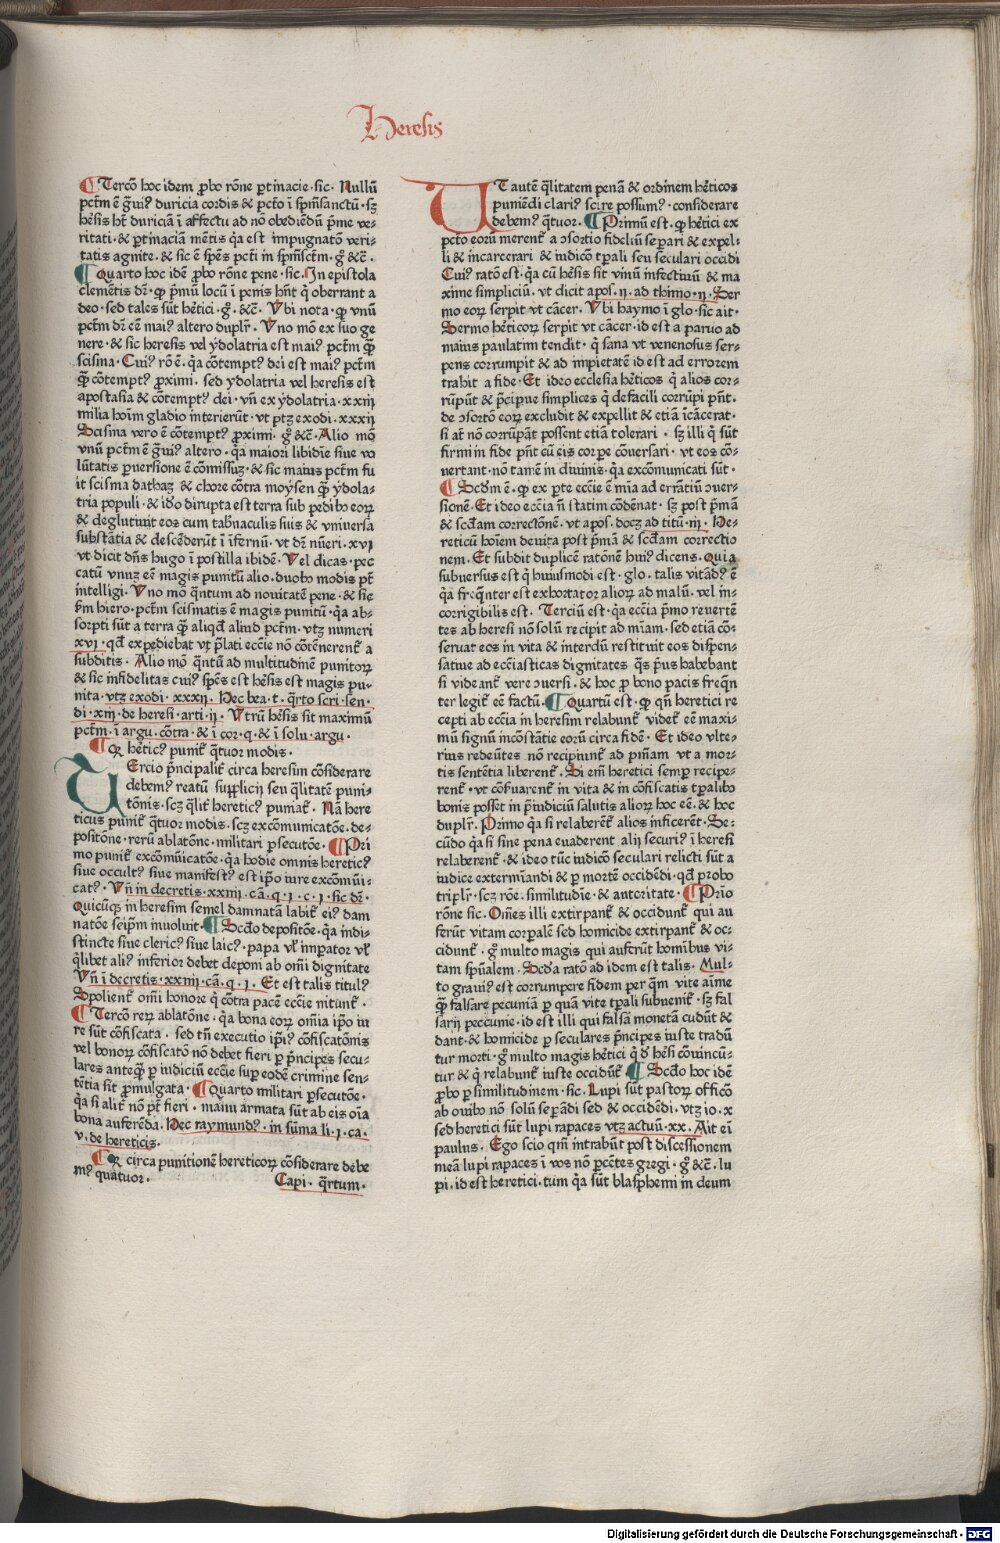 Heresis
¶ Tercō hoc idem ꝓbo rōne ꝑtinacie·sic· Nullū
pctm̄ ē g̃ui⁹ duricia cordis & pctō ī spm̄sanctū·sꝫ
hēsis hꝫ duriciā ī affectu ad nō obediēdū p̄me ve⸗
ritati·& ꝑtinaciā mētis q̇a est impugnatō veri⸗
tatis agnite·& sic ē spēs pcti in spm̄sctm̄·g̊ &c̄·
¶ Quarto hoc idē ꝓbo rōne pene·sic· In epistola
clemētis dr̄·ꝙ p̄mū locū ī penis hn̄t q̇ oberrant a
deo·sed tales sūt hētici·g̊·&c̄· Vbi nota·ꝙ vnū
pctm̄ dr̄ eē mai⁹ altero duplr̄· Vno mō ex suo ge
nere·& sic heresis vel ydolatria est mai⁹ pctm̄ q̄ꝫ
scisma· Cui⁹ rō ē·q̇a cōtempt⁹ dei est mai⁹ pctm̄
q̄ꝫ cōtempt⁹ ꝓximi· sed ydolatria vel heresis est
apostasia & cōtempt⁹ dei·vn̄ ex ydolatria·xxiij
milia hoīm gladio interierūt·vt ptꝫ exodi·xxxij
Scisma vero ē cōtempt⁹ ꝓximi·g̊ &c̄· Alio mō
vnū pctm̄ ē g̃ui⁹ altero·q̇a maiori libidīe siue vo
lūtatis ꝑuersione ē cōmissuꝫ·& sic maius pctm̄ fu
it scisma dathaꝫ & chore cōtra moysen q̄ꝫ ydola⸗
tria populi·& iđo dirupta est terra sub pedibꝰ eoꝝ
& deglutiuit eos cum tab̄naculis suis & vniuersa
substātia & descēderūt ī īfernū·vt dr̄ nūeri·xvi
vt dicit dn̄s hugo ī postilla ibidē· Vel dicas·pec
catū vnuꝫ eē magis punitū alio·duobꝰ modis pt̄
intelligi· Vno mō q̄ntum ad nouitatē pene·& sic
sm̄ hiero·pctm̄ scismatis ē magis punitū·q̇a ab⸗
sorpti sūt a terra q̄ꝫ aliqđ aliud pctm̄·vtꝫ numeri
xvi·qđ expediebat vt p̄lati eccīe nō cōtēnerent᷑ a
subditis· Alio mō q̄ntū ad multitudinē punitoꝝ
& sic infidelitas cui⁹ spēs est hēsis est magis pu⸗
nita·vtꝫ exodi·xxxij· Hec bea·t·q̄rto scri·sen⸗
di·xiij·de heresi·arti·ij· Vtrū hēsis sit maximū
pctm̄·ī argu·cōtra·& ī cor·q·& ī solu·argu·
¶ Qꝫ hētic⁹ punit᷑ q̄tuor modis·
TErcio p̄ncipalit᷑ circa heresim cōsiderare
debem⁹ reatū supplicij seu q̄litatē puni⸗
tōnis·scꝫ q̄lit᷑ heretic⁹ puniat᷑· Nā here
ticus punit᷑ q̄tuor modis·scꝫ excōmunicatōe·de⸗
positōne·rerū ablatōne·militari ꝑsecutōe· ¶ Pri
mo punit᷑ excōmūicatōe·q̇a hodie omnis heretic⁹
siue occult⁹ siue manifest⁹ est ip̄o iure excōmūi⸗
cat⁹· Vn̄ in decretis·xxiiij·cā·q·i·c·i·sic dr̄·
Quicūqꝫ in heresim semel damnatā labit᷑ ei⁹ dam
natōne seip̄m inuoluit· ¶ Scđo depositōe·q̇a indi⸗
stincte siue cleric⁹ siue laic⁹·papa vl̄ imperator vl̄
q̇libet ali⁹ inferior debet deponi ab om̄i dignitate
Vn̄ ī decretis·xxiiij·cā·q·i· Et est talis titul⁹
Spolient᷑ om̄i honore q̇ cōtra pacē eccīe nitunt᷑·
¶ Tercō reꝝ ablatōne·q̇a bona eoꝝ om̄ia ip̄o iu
re sūt cōfiscata· sed tn̄ executio ip̄i⁹ cōfiscatōnis
vel bonoꝝ cōfiscatō nō debet fieri ꝑ p̄ncipes secu⸗
lares anteq̄ꝫ ꝑ iudiciū eccīe suꝑ eodē crimine sen⸗
tētia sit ꝓmulgata· ¶ Quarto militari ꝑsecutōe·
q̇a si alit᷑ nō pt̄ fieri·manu armata sūt ab eis oīa
bona auferēda· Hec raymund⁹·in sūma li·i·ca·
v·de hereticis·
¶ Qꝫ circa punitionē hereticoꝝ cōsiderare debe
m⁹ quatuor· Capi·q̄rtum·
UT autē q̄litatem penā & ordinem hēticos
puniēdi clari⁹ scire possim⁹·considerare
debem⁹ q̄tuor· ¶ Primū est·ꝙ hētici ex
pctō eorū merent᷑ a ↄsortio fideliū seꝑari & expel⸗
li & incarcerari & iudicō tꝑali seu seculari occidi
Cui⁹ ratō est·q̇a cū hēsis sit vinū infectiuū & ma
xime simpliciū·vt dicit apos·ij·ad thimo·ij·Ser
mo eoꝝ serpit vt cācer· Vbi haymo ī glo·sic ait·
Sermo hēticoꝝ serpit vt cācer·id est a paruo ad
maius paulatim tendit·q̇ sana vt venenosus ser⸗
pens corrumpit & ad impietatē id est ad errorem
trahit a fide· Et ideo ecclesia hēticos q̇ alios cor⸗
rūpūt & p̄cipue simplices q̇ defacili corrūpi pn̄t·
de ↄsortō eoꝝ excludit & expellit & etiā īcācerat·
si at̄ nō corrūpāt possent etiā tolerari·sꝫ illi q̇ sūt
firmi in fide pn̄t cū eis corꝑe cōuersari·vt eos cō⸗
uertant·nō tamē in diuinis·q̇a excōmunicati sūt·
¶ Scđm ē·ꝙ ex ꝑte eccīe ē mīa ad errātiū ↄuer⸗
sionē·Et ideo eccīa n̄ statim cōdēnat·sꝫ post p̄mā
& scđam correctionē·vt apos·docꝫ ad titū·iij·He⸗
reticū hoīem deuita post p̄mā & scđam correctio
nem·Et subdit duplicē ratōnē hui⁹ dicens·Quia
subuersus est q̇ huiusmodi est·glo·talis vitād⁹ ē
q̇a freq̄nter est exhortator alioꝝ ad malū·vel in⸗
corrigibilis est· Terciū est·q̇a eccīa p̄mo reuertē
tes ab heresi nō solū recipit ad mīam·sed etiā cō⸗
seruat eos in vita & interdū restituit eos dispen⸗
satiue ad eccīasticas dignitates q̄s p̄us habebant
si videant᷑ vere ↄuersi·& hoc ꝓ bono pacis freq̄n
ter legit᷑ eē factū· ¶ Quartū est·ꝙ qn̄ heretici re
cepti ab eccīa in heresim relabunt᷑ videt᷑ eē maxi⸗
mū signū incōstātie eorū circa fidē·Et ideo vlte⸗
rius redeūtes nō recipiunt᷑ ad pm̄am vt a mor⸗
tis sentētia liberent᷑·Si em̄ heretici semꝑ recipe⸗
rent᷑·vt cōseruarent᷑ in vita & in cōfiscatis tꝑalibꝰ
bonis posset in p̄iudiciū salutis alioꝝ hoc eē·& hoc
duplr̄·Primo q̇a si relaberēt᷑ alios inficerēt·Se⸗
cūdo q̇a si sine pena euaderent alij securi⁹ ī heresi
relaberent᷑·& ideo tūc iudicō seculari relicti sūt a
iudice extermiandi & ꝑ mortē occidēdi·qđ probo
triplr̄·scꝫ rōe·similitudīe & autoritate· ¶ Prīo
rōne sic·Om̄es illi extirpant᷑ & occidunt᷑ qui au
ferūt vitam corꝑalē sed homicide extirpant᷑ & oc⸗
cidunt᷑·g̊ multo magis qui auferūt hominibus vi⸗
tam sp̄ualem·Scđa ratō ad idem est talis·Mul⸗
to graui⁹ est corrumpere fidem per quā vite aīme
q̄ꝫ falsare pecuniā ꝑ quā vite tꝑali subuenit᷑·sꝫ fal
sarij peccunie·id est illi qui falsā monetā cudūt &
dant·& homicide ꝑ seculares p̄ncipes iuste tradū
tur morti·g̊ multo magis hētici q̇ đ hēsi cōuincū⸗
tur & q̇ relabunt᷑ iuste occidūt᷑ ¶ Scđo hoc idē
ꝓbo ꝑ similitudinem·sic·Lupi sūt pastoꝝ officō
ab ouibꝰ nō solū seꝑādi sed & occidēdi·vtꝫ io·x
sed heretici sūt lupi rapaces vtꝫ actuū·xx·Ait ei
paulus·Ego scio qm̄ intrabūt post discessionem
meā lupi rapaces ī vos nō ꝑcētes gregi·g̊ &c̄·lu
pi·id est heretici·tum q̇a sūt blasphemi in deum
Digitalisierung gefördert durch die Deutsche Forschungsgemeinschaft - DFG